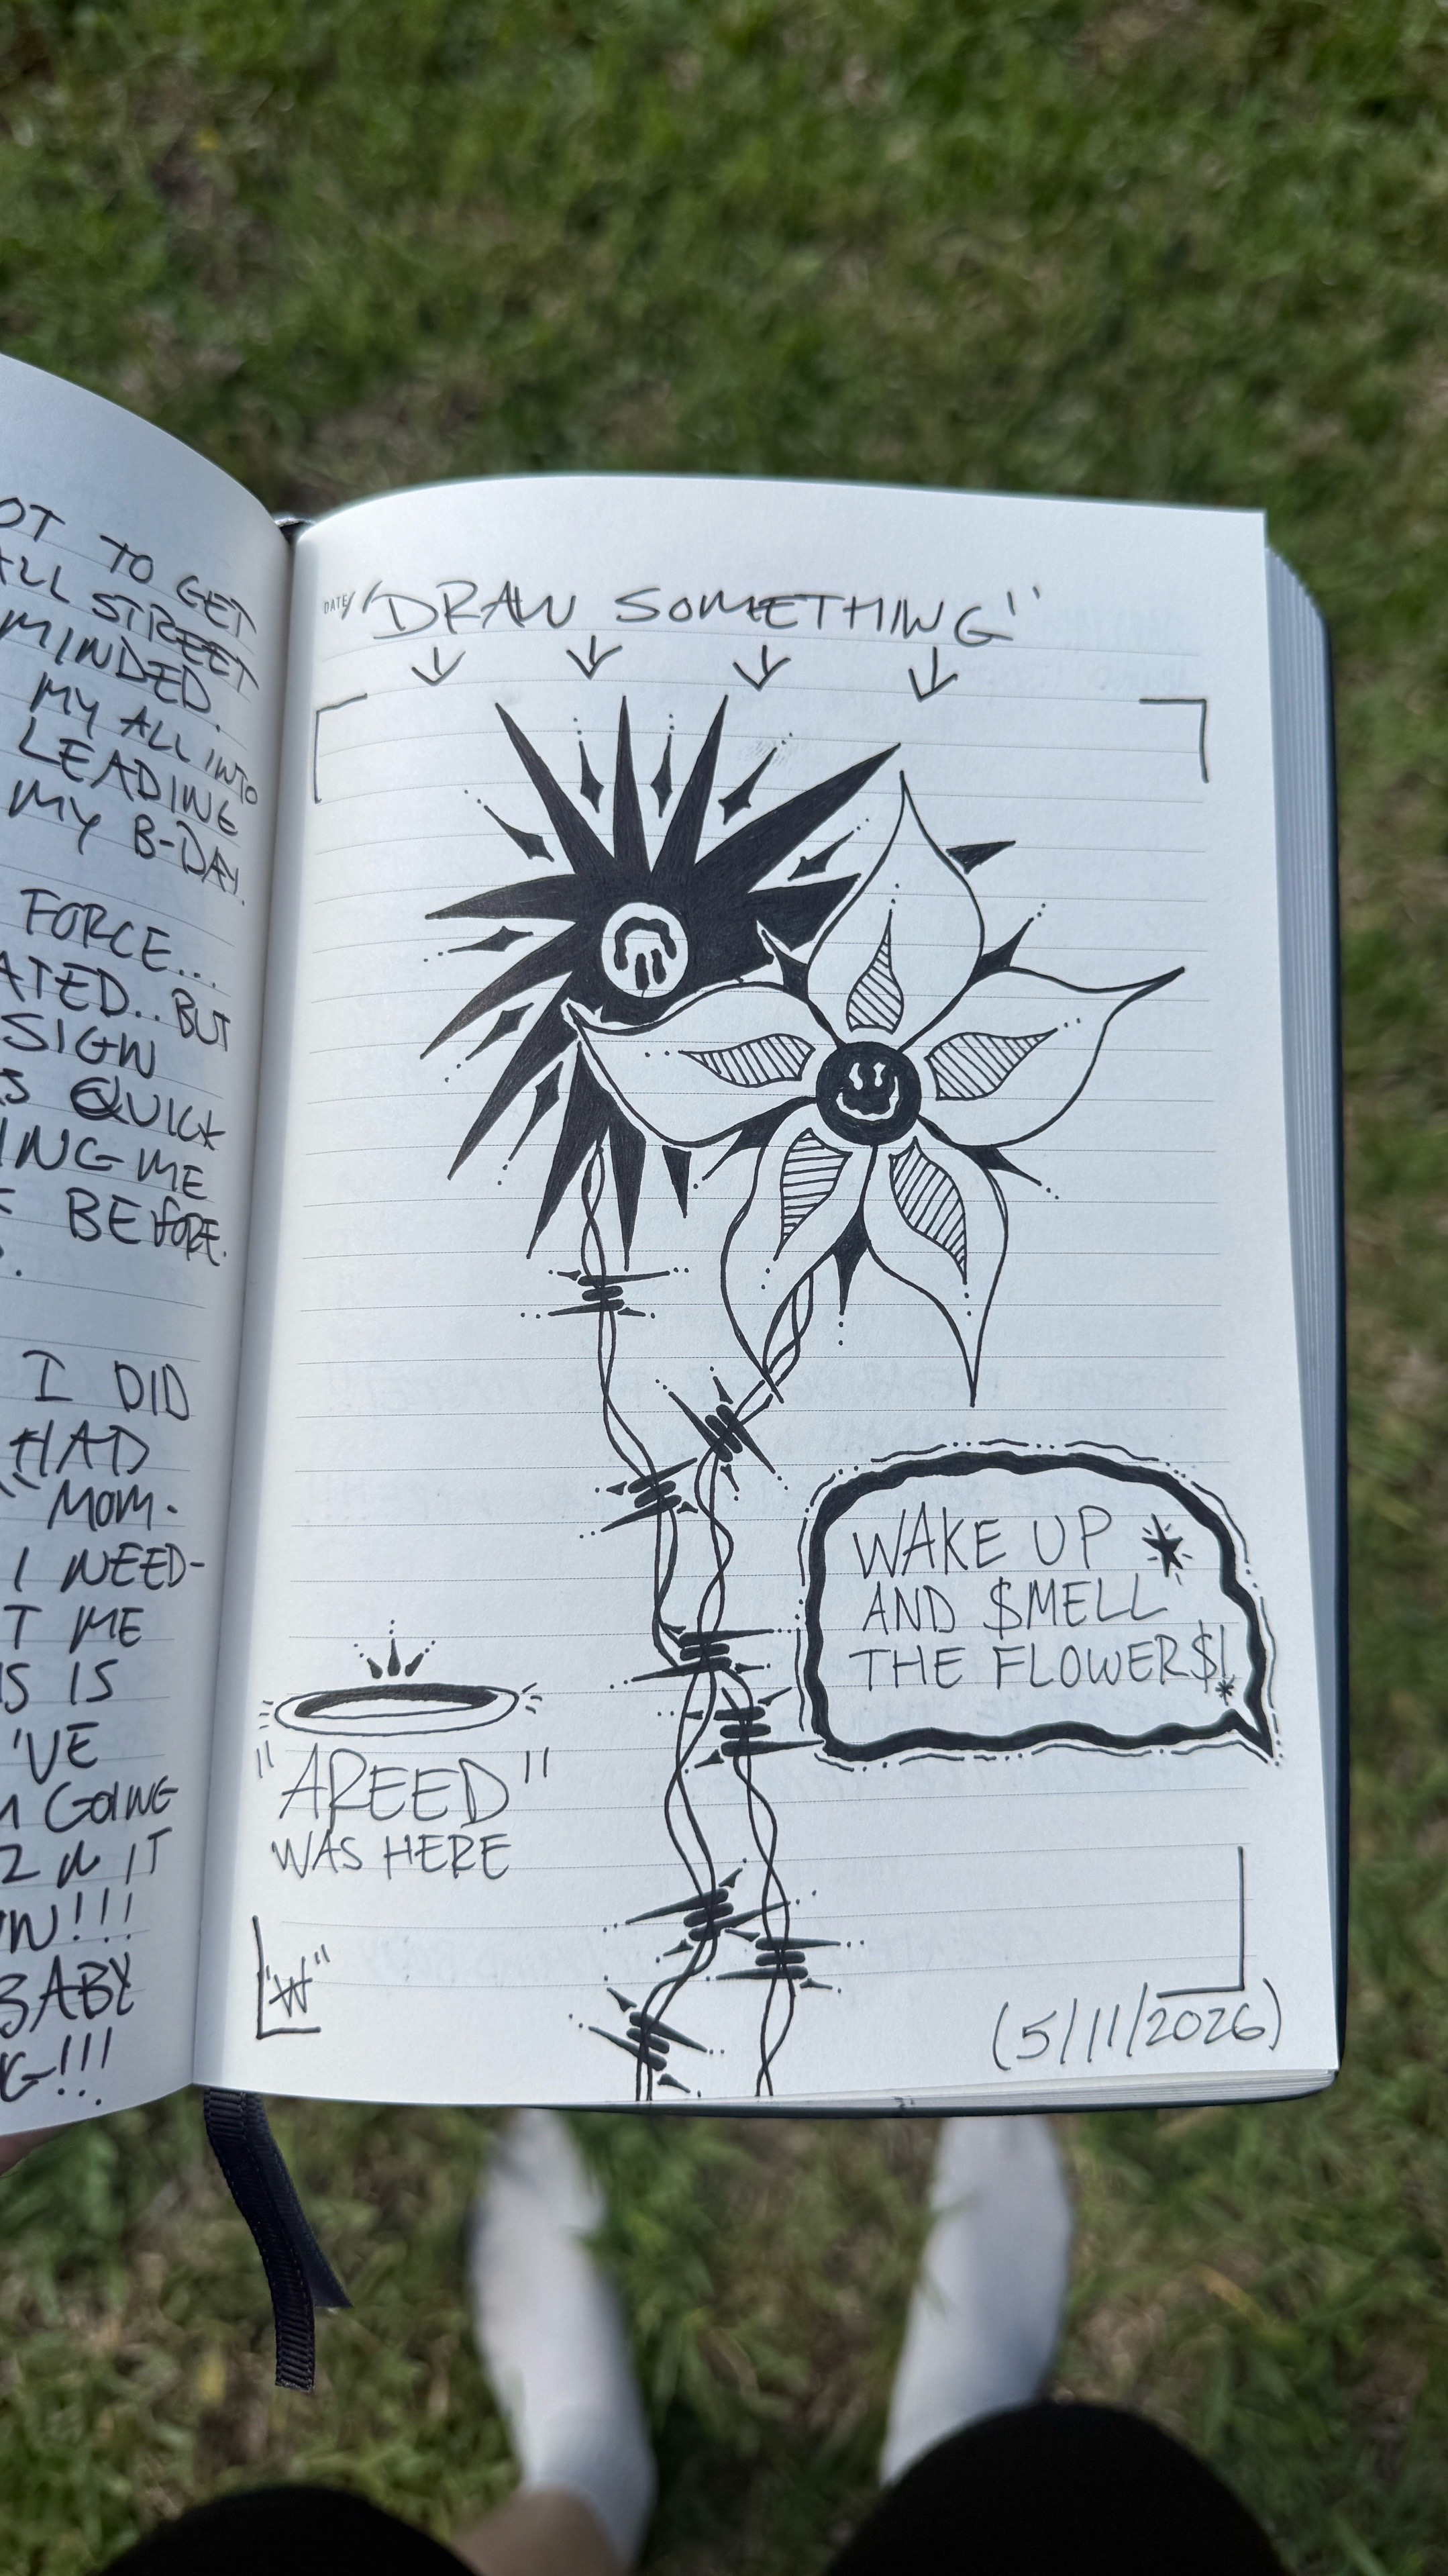 OT TO GET
ALL STREET
MINDED.
MY ALL INTO
LEADING
MY B-DAY.
FORCE...
ATED.. BUT
SIGN
S QUICK
ING ME
BEFORE.
I DID
HAD
MOM.
I NEED-
T ME
IS IS
'VE
GOING
2 N IT
W!!!
BABY
G!!!
DATE/
"DRAW SOMETHING"
WAKE UP
AND $MELL
THE FLOWER$!
"AREED"
WAS HERE
"W"
(5/11/2026)